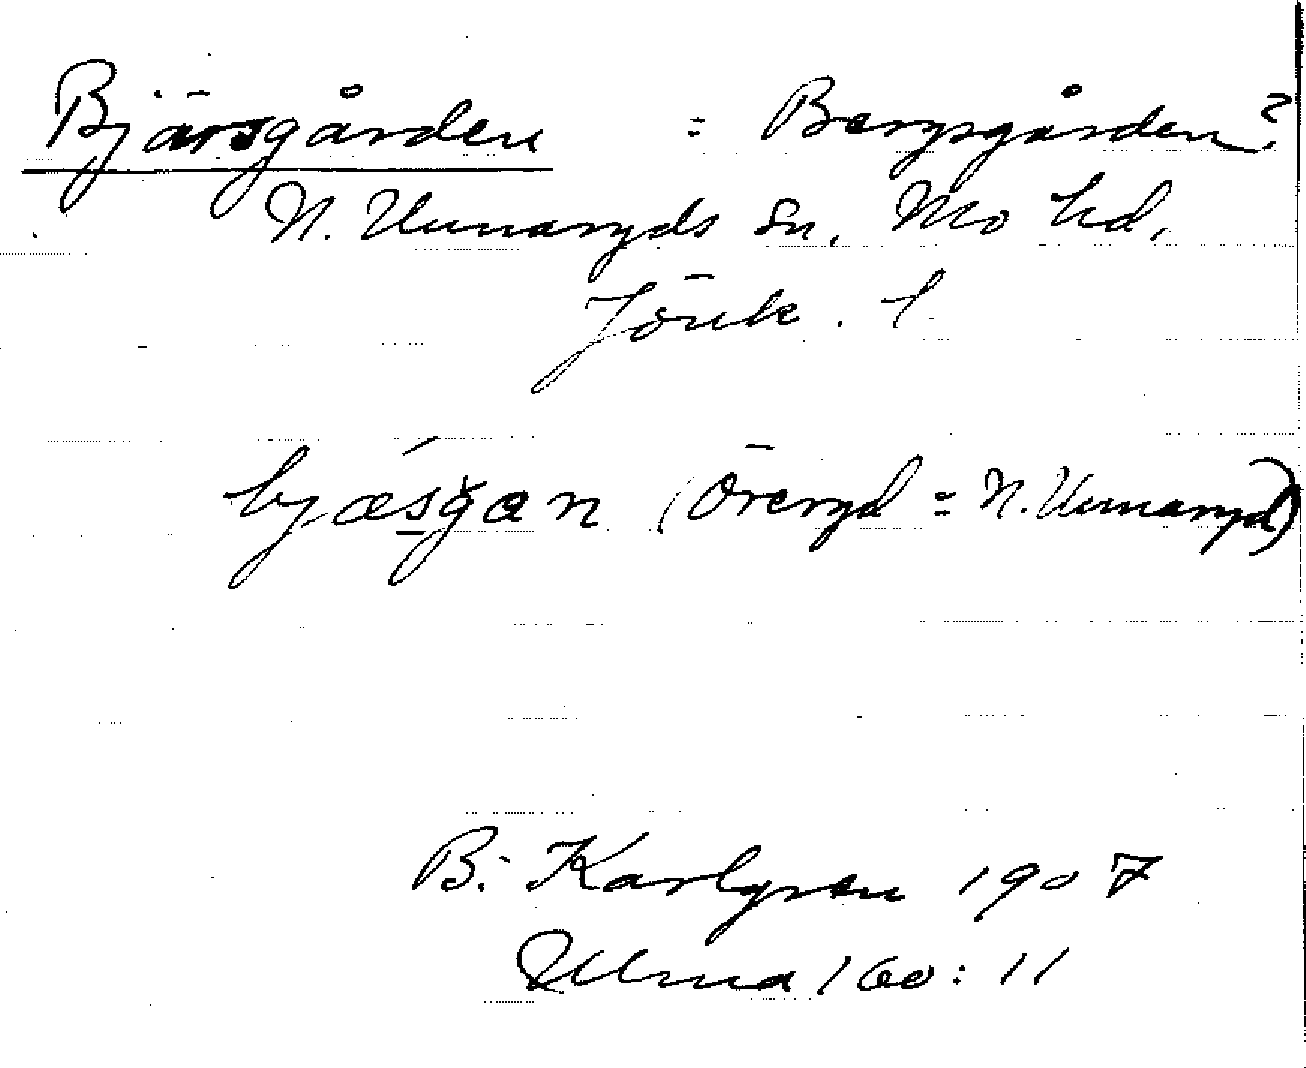 Bjärsgården = Bergsgården?
N. Unnaryds Sn, Mo hd,
Jönk. l.
bjæsgan (Öreryd = N. Unnaryd)
B. Karlgren 1907
Ulma 160:11